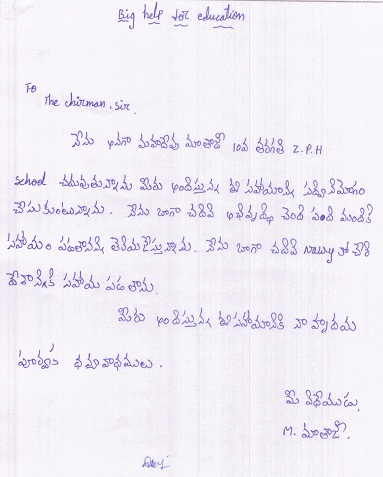 Big help for education
To
The chirman, sir.
నేను అనగా మహాదేవు మాతాజీ 10వ తరగతి Z.P.H
school చదువుతున్నాను మీరు అందిస్తున్న ఈ సహాయాన్ని సద్వినియోగం
చేసుకుంటున్నాను. నేను బాగా చదివి అభివృద్ధి చెంది పది మందికి
సహాయం పడతానని తెలియజేస్తున్నాను. నేను బాగా చదివి Navy లో చేరి
దేశానికి సహాయ పడతాను.
మీరు అందిస్తున్న ఈ సహాయానికి నా హృదయ
పూర్వక ధన్యవాధములు.
మీ విధేయుడు,
M. మాతాజీ.